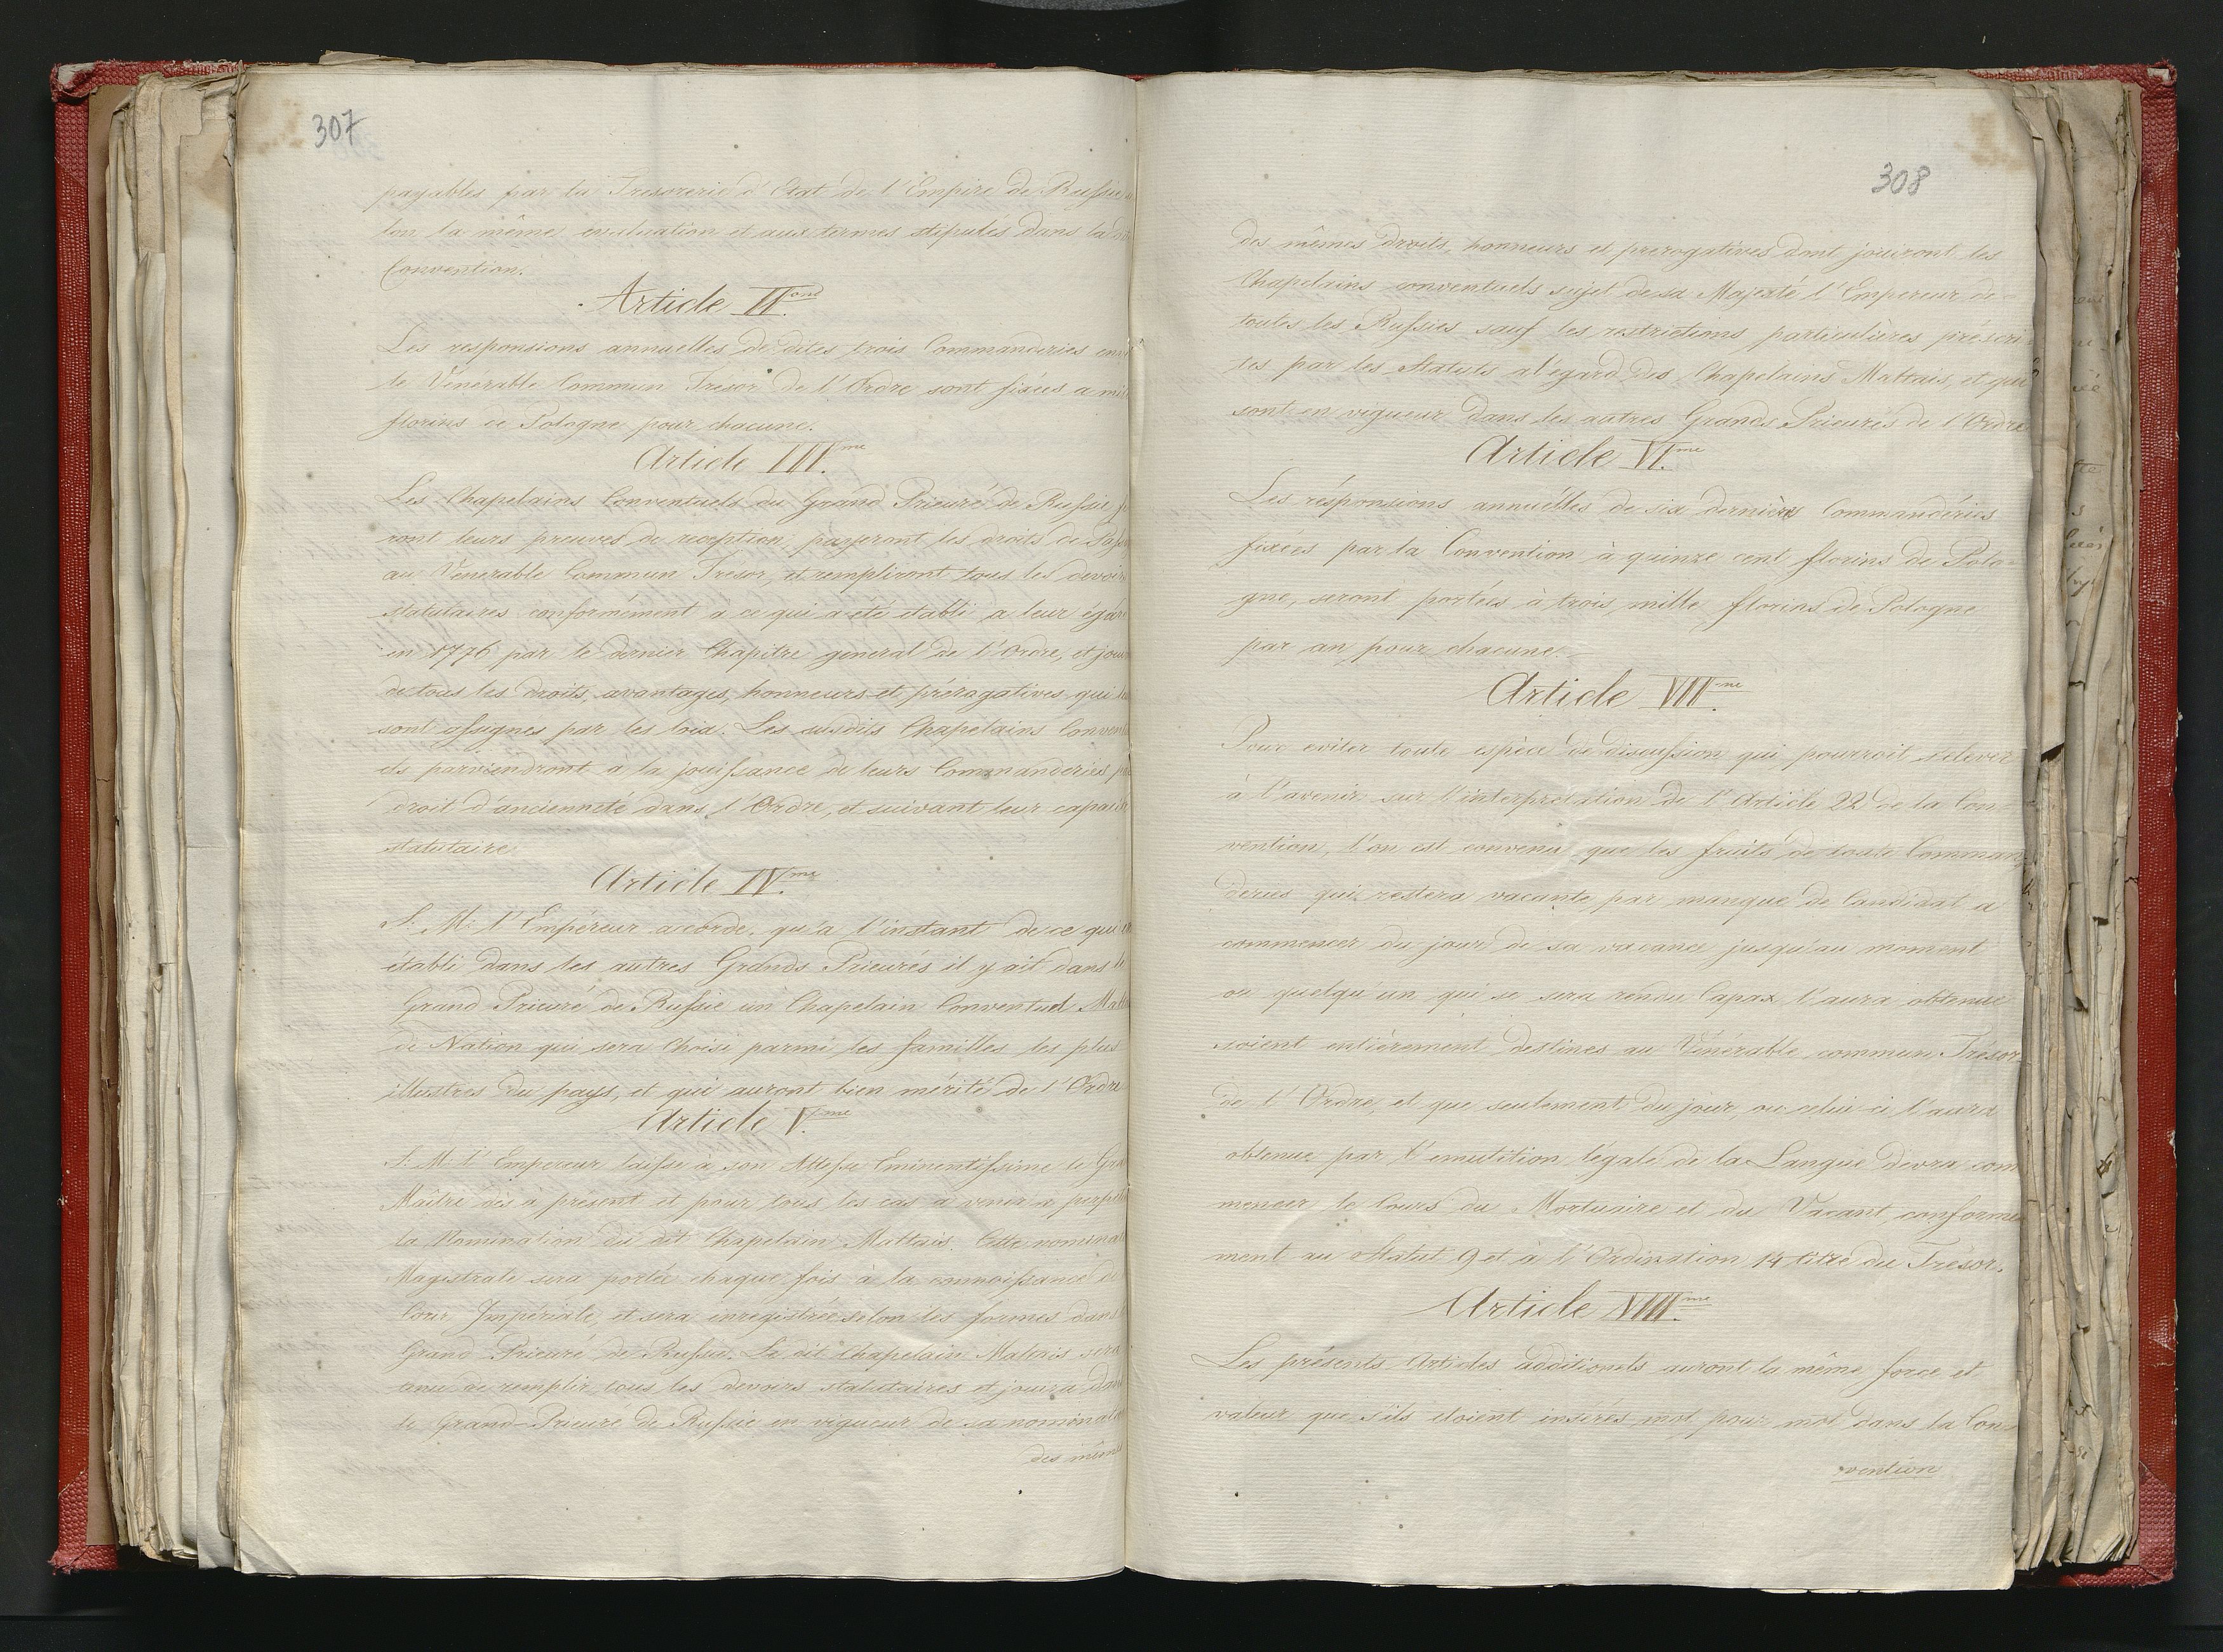 307
payables par la Tresorerie d'Etat de l'Empire de Russie
lon la même evaluation et aux termes stipulés dans la
Convention.
Article II.ond
Les responsions annuelles de dites trois Commanderies
le Venérable Commun Tresor de l'Ordre sont fixées a
florins de Pologne pour chacune.
Article III.me
Les Chapelains Conventuels du Grand Prieuré de Russie
ront leurs preuves de reception, payeront les droits de
au Venerable Commun Tresor, et rempliront tous les devoirs
statutaires conformément à ce qui a été établi a leur égar
en 1776 par le dernier Chapitre general de l'Ordre, et
de tous les droits, avantages, honneurs et prérogatives qui
sont assignes par les loix. Les susdits Chapelains Conven
els parviendront à la jouissance de leurs Commanderies
droit d'ancienneté dans l'Ordre, et suivant leur
statutaire
Article IV.me
S. M. l'Empéreur accorde, qu'a l'instant de ce qui
établi dans les autres Grands Prieurés il y ait dans
Grand Prieuré de Russie un Chapelain Conventuel
de Nation qui sera Choisi parmi les familles les plus
illustres du pays, et qui auront bien mérité de l'Ordre
Article V.me
S. M. l'Empereur laisse à son Altesse Eminentissime le
Maître dès à présent et pour tous les cas a venir a
la Nomination du dit Chapelain Maltais. Cette
Magistrale sera portée chaque fois à la connoissance
Cour Impériale, et sera enregistrée selon les formes dans
Grand Prieuré de Russie. Le dit Chapelain Maltais sera
tenu de remplir tous les devoirs statutaires et jouira
le Grand-Prieuré de Russie en vigueur de sa
des mêmes
308
des mêmes droits, honneurs et prerogatives dont jouiront les
Chapelains conventuels sujet de sa Majesté l'Empereur de
toutes les Russies sauf les restrictions particulières préscri
tes par les Statuts a l'egard des Chapelains Maltais, et qui
sont en vigueur dans les autres Grands Prieurés de l'Ordre
Article VI.me
Les résponsions annuélles de six dernières Commandéries
fixées par la Convention à quinze cent florins de Polo=
gne, seront portées à trois mille florins de Pologne
par an pour chacune.
Article VII.me
Pour eviter toute espèce de discussion qui pourroit s'elever
à l'avenir sur l'interprétation de l'Article 22 de la Con=
vention, l'on est convenu que les fruits de toute Comman
deries qui restera vacante par manque de Candidat a
commencer du jour de sa vacance jusqu'au moment
ou quelqu'un qui se sera rendu Capax l'aura obtenue
soient entiérement destines au Vénérable commun Trésor
de l'Ordre, et que seulement du jour, ou celui-ci l'aura
obtenue par l'emutition légale de la Langue devra com
mencer le Cours du Mortuaire et du Vacant, conforme
ment au Statut 9 et à l'Ordination 14 titre du Tresor.
Article VIII.me
Les présents Articles additionels auront la même force et
valeur que s'ils étoient insérés mot pour mot dans la Con=
vention